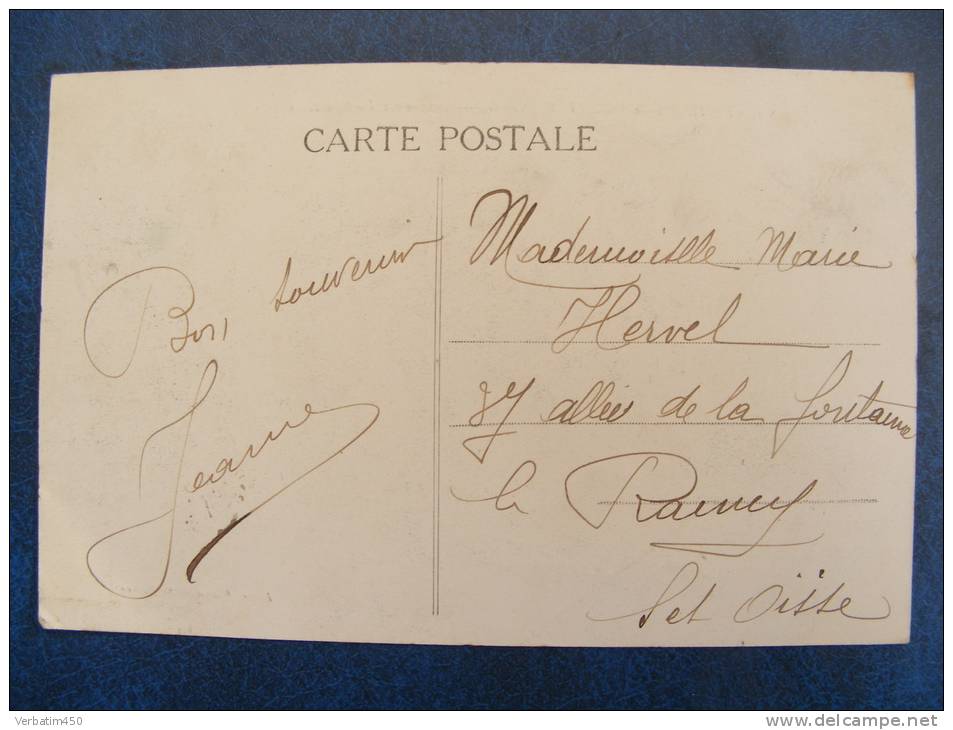 CARTE POSTALE
Bon souvenir
Jeanne
Mademoiselle Marie
Hervel
37 allée de la fontaine
Le Raincy
Set Oisse
Verbatim450
www.delcampe.net